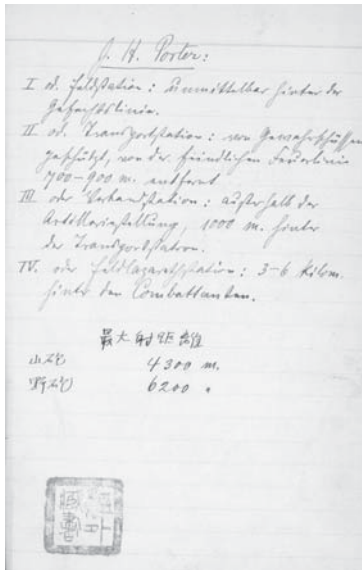 J. H. Porter:
I od. Feldstation: Unmittelbar hinter der
Gefechtslinie.
II od. Transportstation: von Gewehrschüssen
geschützt, von der feindlichen Feuerlinie
700-900 m. entfernt
III oder Verbandstation: außerhalb der
Artilleriestellung, 1000 m. hinter
der Transportstation.
IV. oder Feldlazarethstation: 3-6 Kilom.
hinter den Combattanten.
最大射距離
山砲 4300 m.
野砲 6200 "